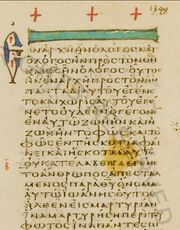 ΕΝΑΡΧΗΗΝΟΛΟΓΟϹΚΑΙΟ
ΛΟΓΟϹΗΝΠΡΟϹΤΟΝΘΝ
ΚΑΙΘϹΗΝΟΛΟΓΟϹ·ΟΥΤΟϹ
ΗΝΕΝΑΡΧΗΠΡΟϹΤΟΝΘΝ
ΠΑΝΤΑΔΙΑΥΤΟΥΕΓΕΝΕ
ΤΟΚΑΙΧΩΡΙϹΑΥΤΟΥΕΓΕ
ΝΕΤΟΟΥΔΕΕΝΟΓΕΓΟΝΕ
ΕΝΑΥΤΩΖΩΗΗΝΚΑΙΗ
ΖΩΗΗΝΤΟΦΩϹ ΚΑΙΤΟ
ΦΩϹΕΝΤΗϹΚΟΤΙΑΦΑΙ
ΝΕΙΚΑΙΗϹΚΟΤΙΑΑΥΤΟ
ΟΥΚΑΤΕΛΑΒΕΝ ΕΓΕΝΕ
ΤΟΑΝΘΡΩΠΟϹΑΠΕϹΤΑΛ
ΜΕΝΟϹΠΑΡΑΘΥΟΝΟΜΑ
ΑΥΤΩΙΩΑΝΝΗϹΟΥΤΟϹ
ΗΛΘΕΝΕΙϹΜΑΡΤΥΡΙΑΝ
ΙΝΑΜΑΡΤΥΡΗϹΗΠΕΡΙΤΟΥ
ΦΩΤΟϹΙΝΑΠΑΝΤΕϹΠΙϹ